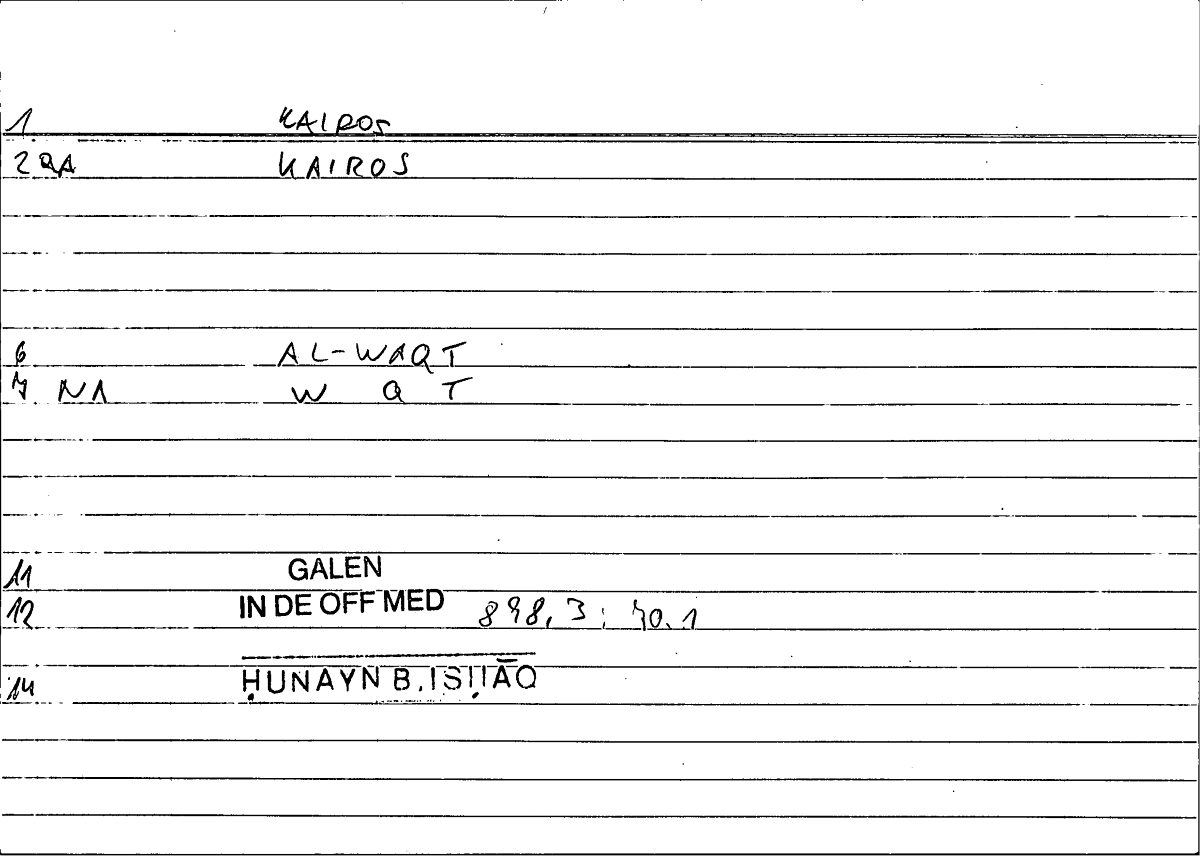 1 KAIROS
2 QA KAIROS
6 AL-WAQT
7 NA W Q T
11 GALEN
12 IN DE OFF MED 898,3 : 70.1
14 ḤUNAYN B. ISḤĀQ